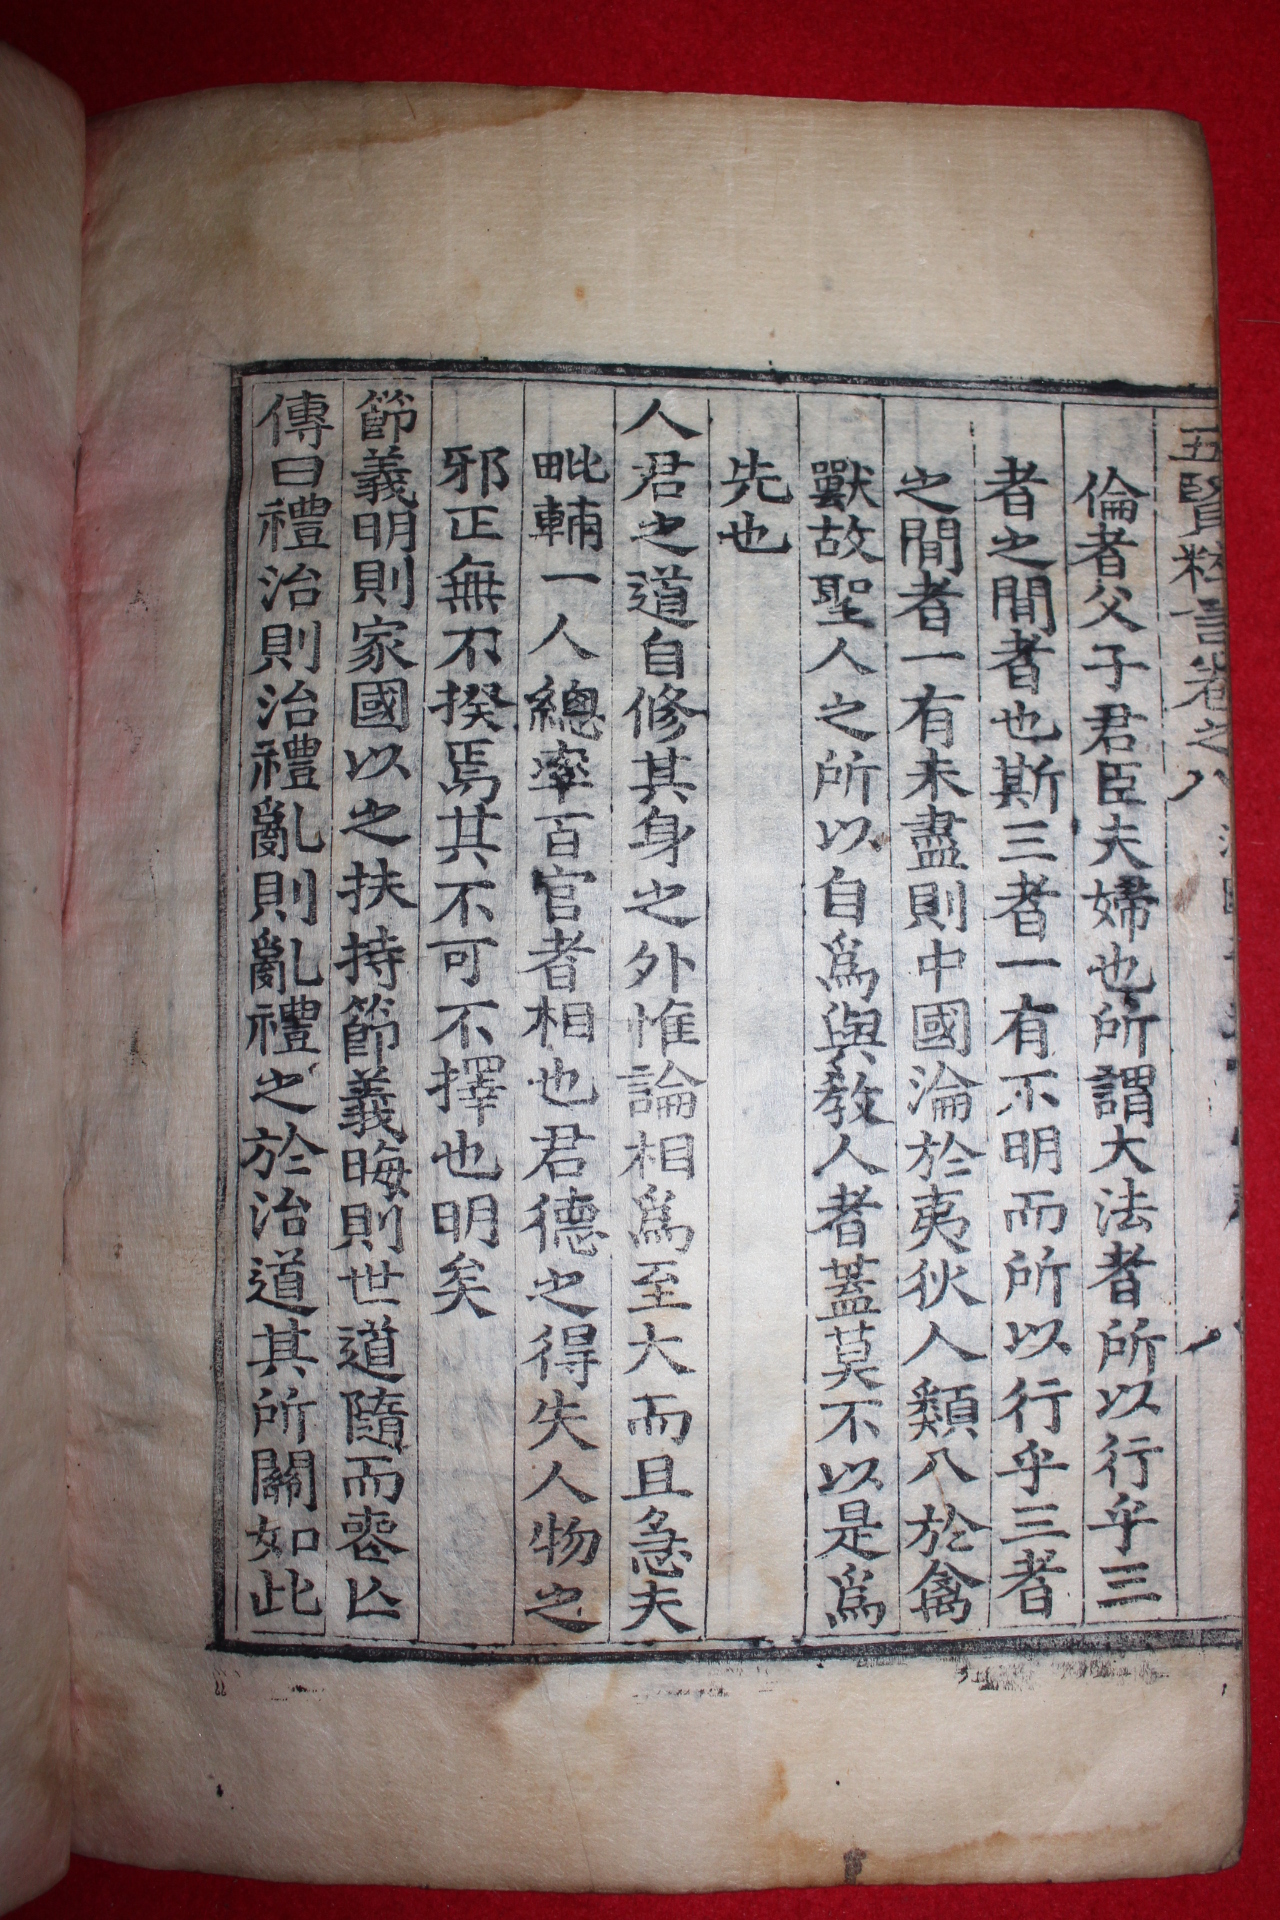 五賢粹言卷之八 八
倫者父子君臣夫婦也所謂大法者所以行乎三
者之間者也斯三者一有不明而所以行乎三者
之間者一有未盡則中國淪於夷狄人類入於禽
獸故聖人之所以自爲與教人者蓋莫不以是爲
先也
人君之道自修其身之外惟論相爲至大而且急夫
毗輔一人總率百官者相也君德之得失人物之
邪正無不揆焉其不可不擇也明矣
節義明則家國以之扶持節義晦則世道隨而喪亾
傳曰禮治則治禮亂則亂禮之於治道其所關如此